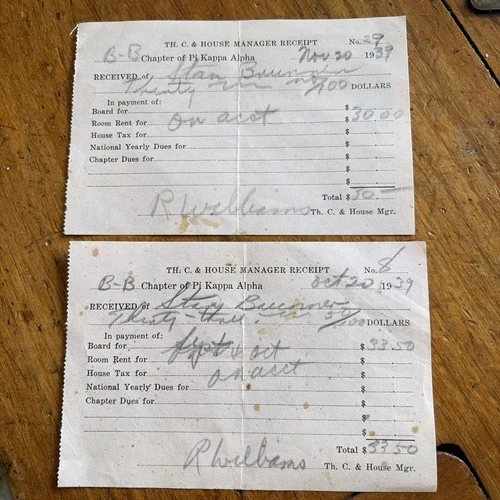 TH. C. & HOUSE MANAGER RECEIPT No. 29
B-B Chapter of Pi Kappa Alpha Nov 20 1939
RECEIVED of Stan Buenner
Thirty no/100 DOLLARS
In payment of:
Board for $
Room Rent for on acct $ 30.00
House Tax for $
National Yearly Dues for $
Chapter Dues for $
$
$
Total $ 30
R Williams Th. C. & House Mgr.
TH. C. & HOUSE MANAGER RECEIPT No. 8
B-B Chapter of Pi Kappa Alpha Oct 20 1939
RECEIVED of Stan Buenner
Thirty-three 50/100 DOLLARS
In payment of:
Board for Sept & oct $ 33.50
Room Rent for on acct $
House Tax for $
National Yearly Dues for $
Chapter Dues for $
$
$
Total $ 33.50
R Williams Th. C. & House Mgr.